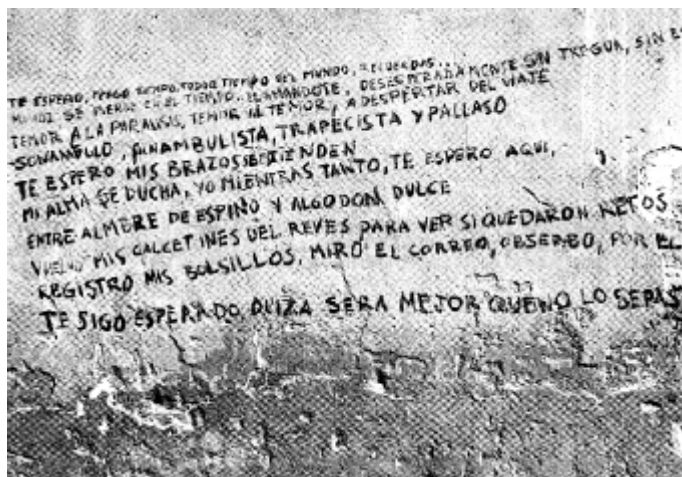 TE ESPERO, TENGO TIEMPO, TODO EL TIEMPO DEL MUNDO, RECUERDAS...
SE PIERDE EN EL TIEMPO.. LLAMANDOTE, DESESPERADAMENTE SIN TREGUA, SIN
TEMOR A LA PARALISIS, TEMOR AL TEMOR, A DESPERTAR DEL VIAJE
SONAMBULO, FUNAMBULISTA, TRAPECISTA Y PALLASO
TE ESPERO MIS BRAZOS SE TIENDEN
MI ALMA SE DUCHA, YO MIENTRAS TANTO, TE ESPERO AQUI,
ENTRE ALMBRE DE ESPINO Y ALGODON DULCE
VUELVO MIS CALCETINES DEL REVES PARA VER SI QUEDARON RETOS
REGISTRO MIS BOLSILLOS, MIRO EL CORREO, OBSERBO, POR EL
TE SIGO ESPERADO QUIZA SERA MEJOR QUE NO LO SEPAS